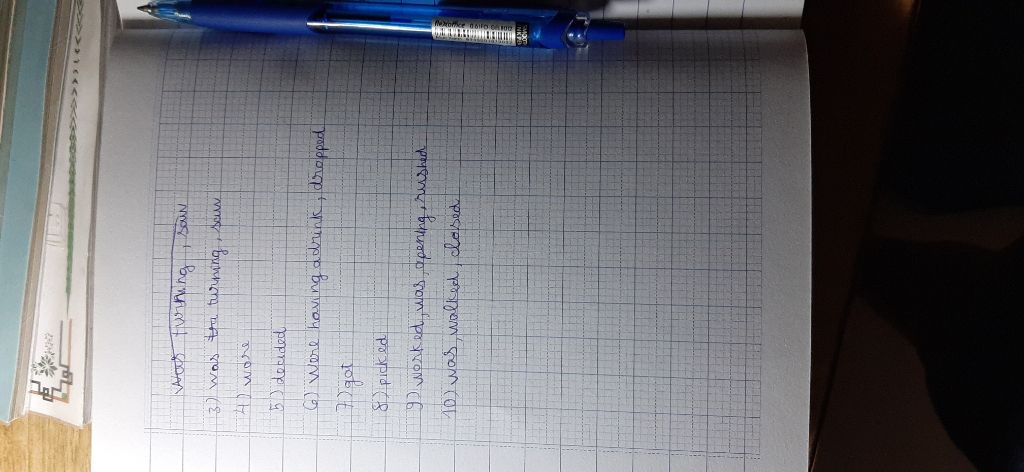 was turning, saw
3) was the turning, saw
4) wore
5) decided
6) were having a drink, dropped
7) got
8) picked
9) worked, was, opening, rushed
10) was, walked, closed
flexoffice